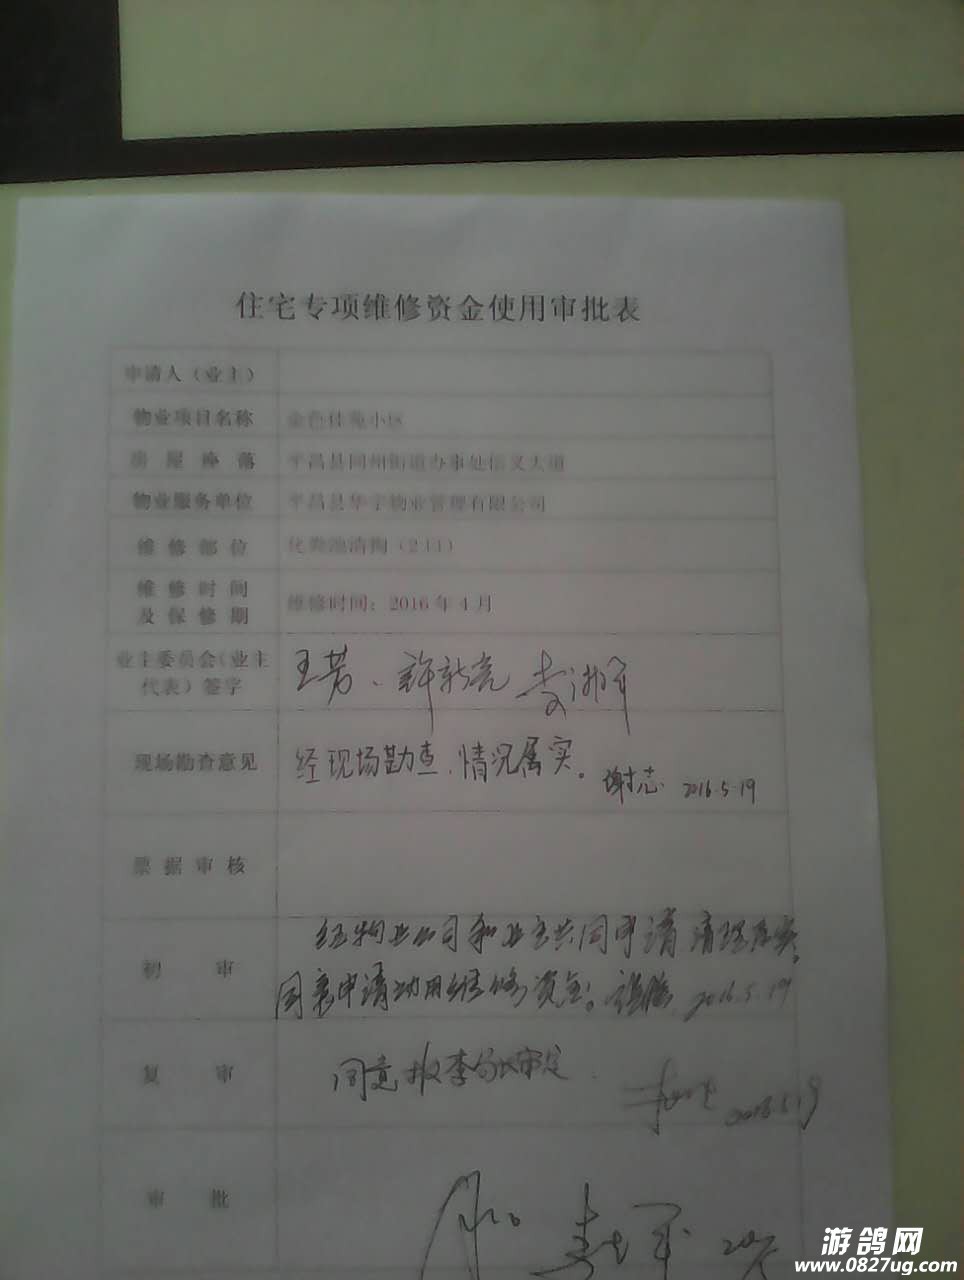 住宅专项维修资金使用审批表
申请人（业主）
物业项目名称 金色佳苑小区
房屋座落 平昌县同州街道办事处信义大道
物业服务单位 平昌县华宇物业管理有限公司
维修部位 化粪池清掏（2口）
维修时间
及保修期 维修时间：2016年4月
业主委员会（业主
代表）签字 王芳、许新亮
现场勘查意见 经现场勘查，情况属实。
谢志 2016.5.19
票据审核
初审 经物业公司和业主共同申请 清理属实。
同意申请动用维修资金。 2016.5.19
复审 同意报李局长审定
2016.5.19
审批
游鸽网
www.0827ug.com